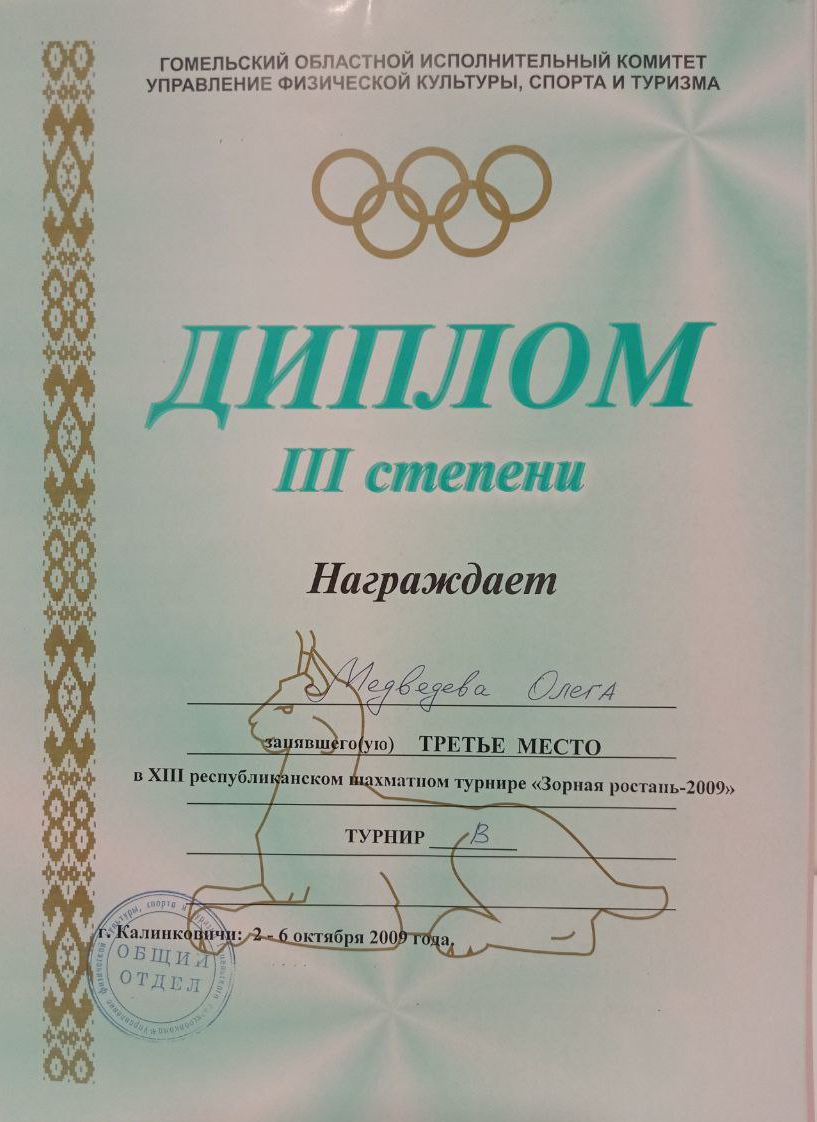 ГОМЕЛЬСКИЙ ОБЛАСТНОЙ ИСПОЛНИТЕЛЬНЫЙ КОМИТЕТ
УПРАВЛЕНИЕ ФИЗИЧЕСКОЙ КУЛЬТУРЫ, СПОРТА И ТУРИЗМА
ДИПЛОМ
III степени
Награждает
Медведева Олега
занявшего(ую) ТРЕТЬЕ МЕСТО
в XIII республиканском шахматном турнире «Зорная ростань-2009»
ТУРНИР В
г. Калинковичи: 2 - 6 октября 2009 года.
ОБЩИЙ
ОТДЕЛ